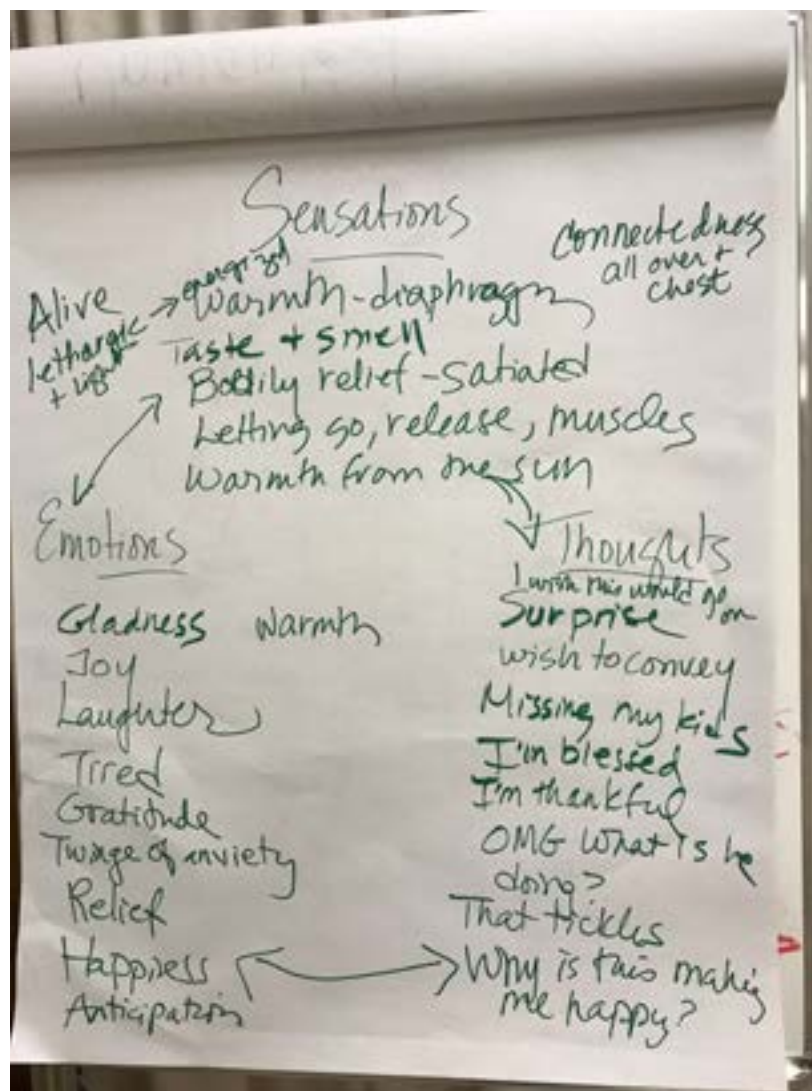 Sensations
Connectedness
all over +
chest
Alive
lethargic → energized
+ light
Warmth - diaphragm
Taste + smell
Bodily relief - satiated
Letting go, release, muscles
Warmth from the sun
Emotions
Gladness Warmth
Joy
Laughter
Tired
Gratitude
Twinge of anxiety
Relief
Happiness
Anticipation
Thoughts
I wish this would go on
Surprise
wish to convey
Missing my kids
I'm blessed
I'm thankful
OMG What is he
doing?
That tickles
Why is this making
me happy?